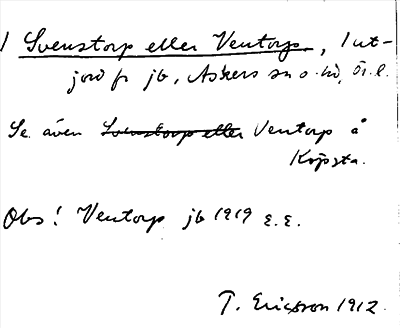 1 Svenstorp eller Ventorp, 1 ut-
jord fr jb, Askers sn o. hd, Ör. l.
Se även Svenstorp eller Ventorp å
Köpsta.
Obs! Ventorp jb 1919 E.E.
T. Ericsson 1912.